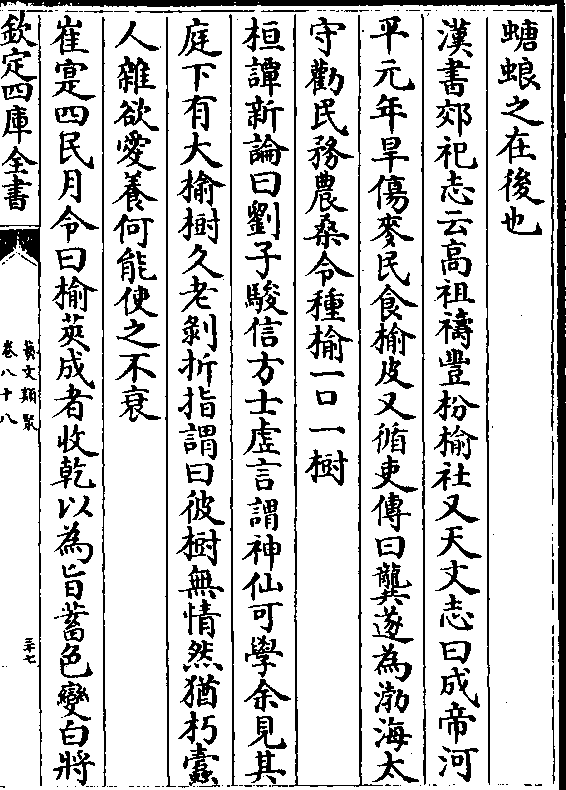 螗蜋之在後也
漢書郊祀志云高祖禱豐枌榆社又天文志曰成帝河
平元年旱傷麥民食榆皮又循吏傳曰龔遂為渤海太
守勸民務農桑令種榆一口一樹
桓譚新論曰劉子駿信方士虛言謂神仙可學余見其
庭下有大榆樹久老剝折指謂曰彼樹無情然猶朽蠧
人雖欲愛養何能使之不衰
崔寔四民月令曰榆莢成者收乾以為旨蓄色變白將
欽定四庫全書
藝文類聚
卷八十八
三十七